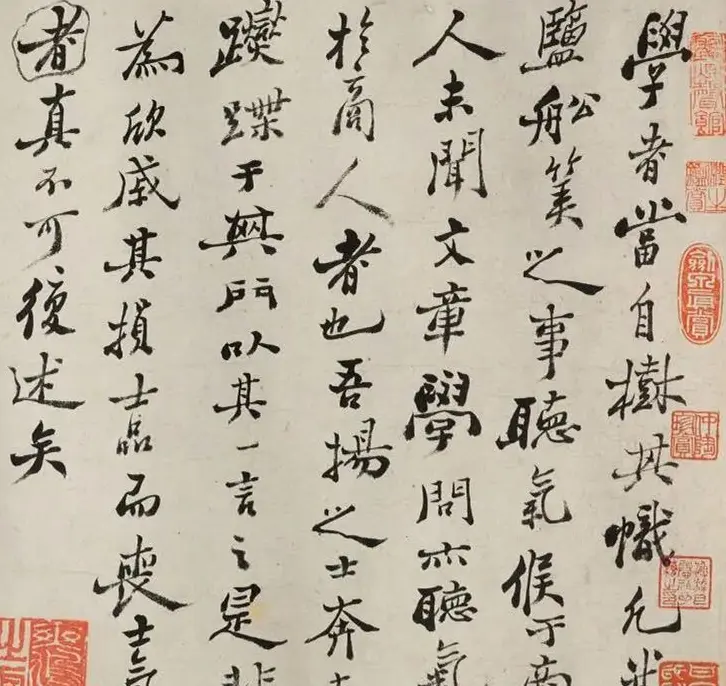 學者當自樹其幟凡
鹽船筭之事聽氣候于商
人未聞文章學問亦聽氣
於商人者也吾揚之士奔
躞蹀于其門以其一言之是非
為欣戚其損士品而喪士氣
者真不可復述矣